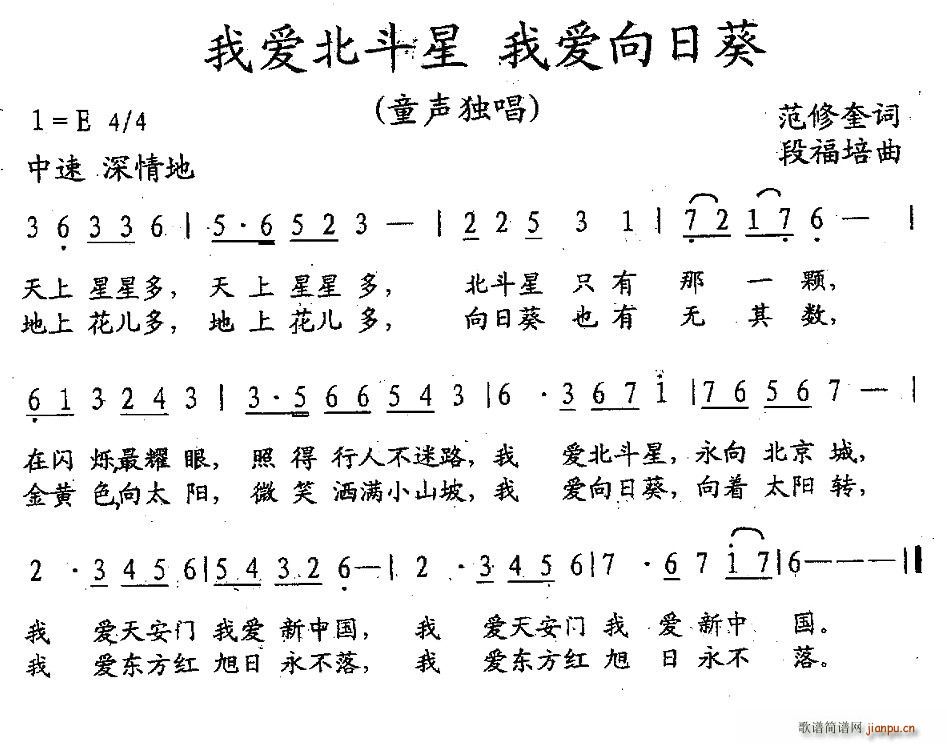 我爱北斗星 我爱向日葵
(童声独唱)
1=E 4/4
范修奎词
中速 深情地
段福培曲
3 6 3 3 6 | 5·6 5 2 3 — | 2 2 5 3 1 | 7 2 1 7 6 — |
天上 星星多, 天 上 星星 多, 北斗星 只有 那 一 颗,
地上 花儿多, 地 上 花儿 多, 向日葵 也有 无 其 数,
6 1 3 2 4 3 | 3·5 6 6 5 4 3 | 6 · 3 6 7 i | 7 6 5 6 7 — |
在闪 烁,最耀 眼, 照 得 行人不迷路, 我 爱北斗星, 永向 北京 城,
金黄 色,向太 阳, 微 笑 洒满小山坡, 我 爱向日葵, 向着 太阳 转,
2 · 3 4 5 6 | 5 4 3 2 6 — | 2 · 3 4 5 6 | 7 · 6 7 i 7 | 6 — — — ‖
我 爱天安门 我爱 新中国, 我 爱天安门 我 爱 新中 国。
我 爱东方红 旭日 永不落, 我 爱东方红 旭 日 永不 落。
歌谱简谱网 jianpu.cn